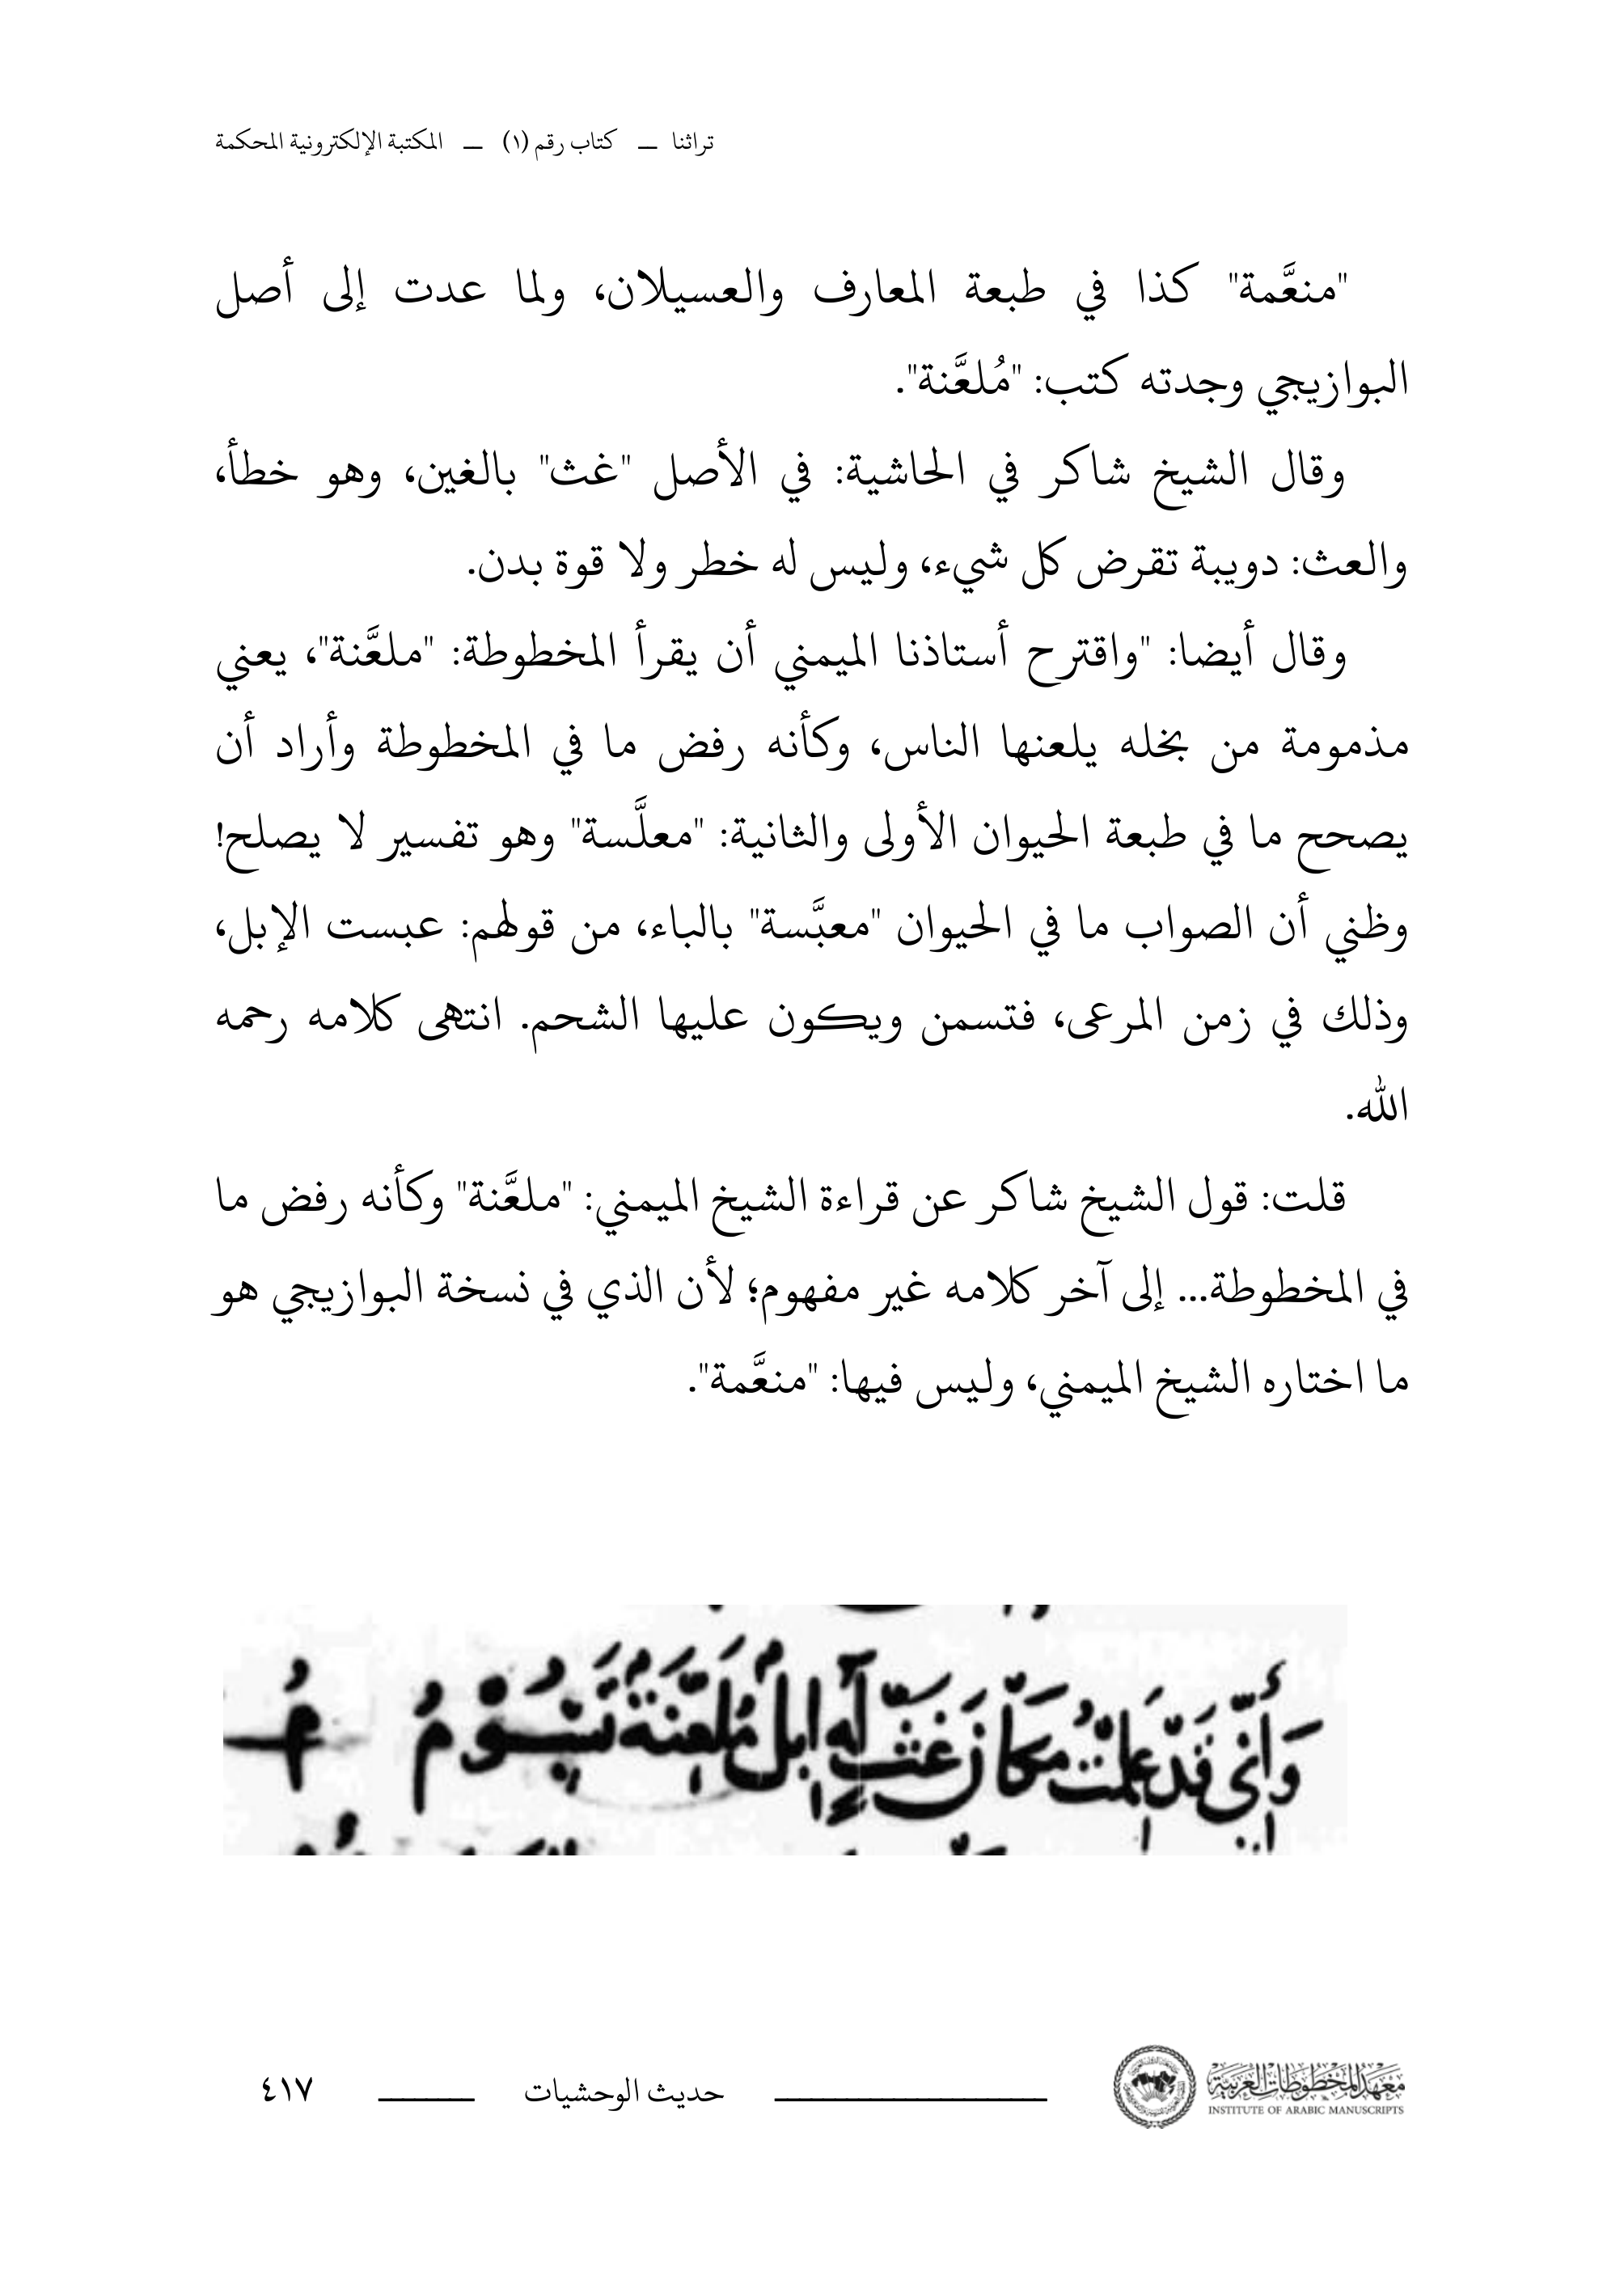 تراثنا — كتاب رقم (١) — المكتبة الإلكترونية المحكمة
"منعَّمة" كذا في طبعة المعارف والعسيلان، ولما عدت إلى أصل
البوازيجي وجدته كتب: "مُلعَّنة".
وقال الشيخ شاكر في الحاشية: في الأصل "غث" بالغين، وهو خطأ،
والعث: دويبة تقرض كل شيء، وليس له خطر ولا قوة بدن.
وقال أيضا: "واقترح أستاذنا الميمني أن يقرأ المخطوطة: "ملعَّنة"، يعني
مذمومة من بخله يلعنها الناس، وكأنه رفض ما في المخطوطة وأراد أن
يصحح ما في طبعة الحيوان الأولى والثانية: "معلَّسة" وهو تفسير لا يصلح!
وظني أن الصواب ما في الحيوان "معبَّسة" بالباء، من قولهم: عبست الإبل،
وذلك في زمن المرعى، فتسمن ويكون عليها الشحم. انتهى كلامه رحمه
الله.
قلت: قول الشيخ شاكر عن قراءة الشيخ الميمني: "ملعَّنة" وكأنه رفض ما
في المخطوطة... إلى آخر كلامه غير مفهوم؛ لأن الذي في نسخة البوازيجي هو
ما اختاره الشيخ الميمني، وليس فيها: "منعَّمة".
وَأَنِّي قَدْ عَلِمْتُ مَكَانَ غَثٍّ لَهُ إِبِلٌ مُلَعَّنَةٌ
معهد المخطوطات العربية
INSTITUTE OF ARABIC MANUSCRIPTS
حديث الوحشيات
٤١٧